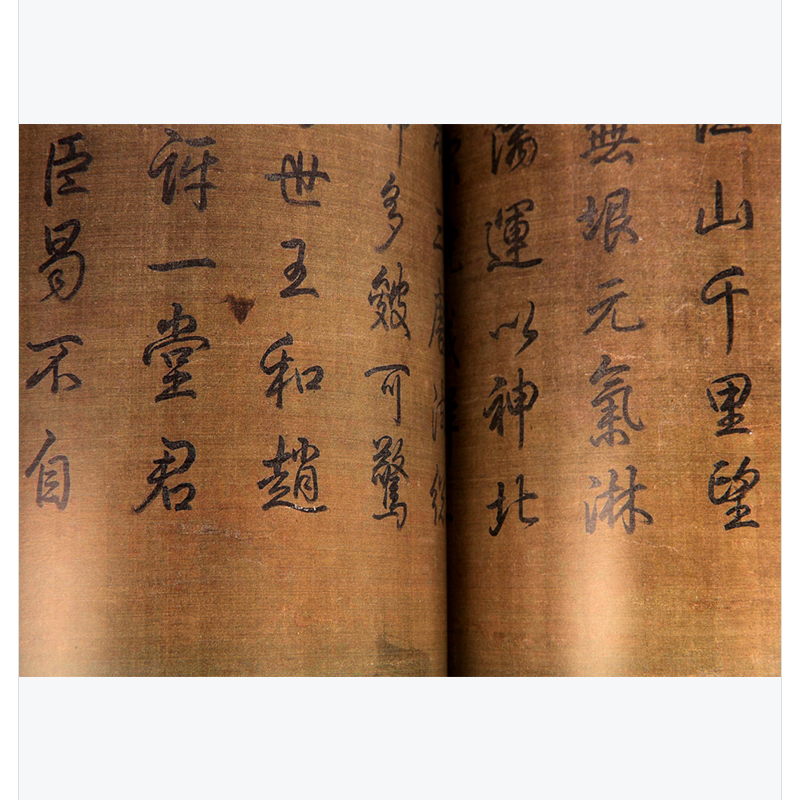 江山千里望
無垠元氣淋
漓運以神北
法從
多皴可驚
世王和趙
訝一堂君
臣曷不自